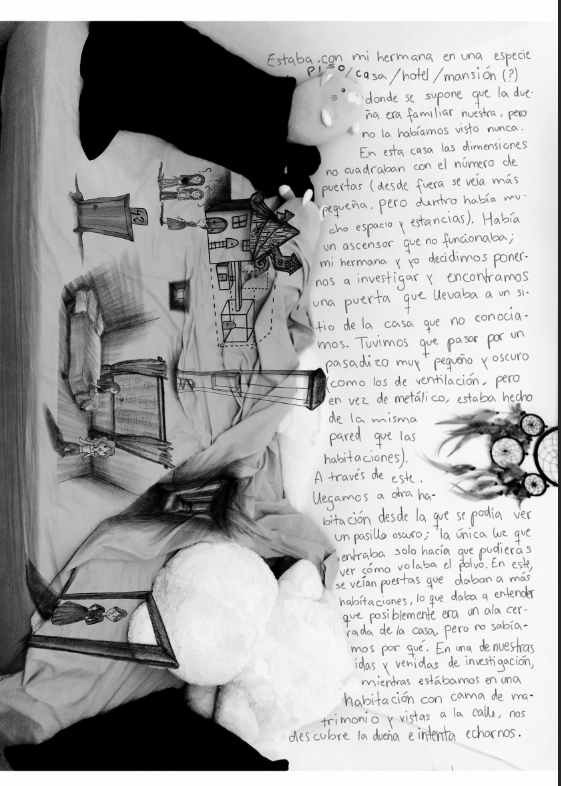 Estaba con mi hermana en una especie
piso/casa/hotel/mansión (?)
donde se supone que la due-
ña era familiar nuestra, pero
no la habíamos visto nunca.
En esta casa las dimensiones
no cuadraban con el número de
puertas (desde fuera se veía más
pequeña, pero dentro había mu-
cho espacio y estancias). Había
un ascensor que no funcionaba;
mi hermana y yo decidimos poner-
nos a investigar y encontramos
una puerta que llevaba a un si-
tio de la casa que no conocía-
mos. Tuvimos que pasar por un
pasadizo muy pequeño y oscuro
(como los de ventilación, pero
en vez de metálico, estaba hecho
de la misma
pared que las
habitaciones).
A través de este,
llegamos a otra ha-
bitación desde la que se podía ver
un pasillo oscuro; la única luz que
entraba solo hacía que pudieras
ver cómo volaba el polvo. En este,
se veían puertas que daban a más
habitaciones, lo que daba a entender
que posiblemente era un ala cer-
rada de la casa, pero no sabía-
mos por qué. En una de nuestras
idas y venidas de investigación,
mientras estábamos en una
habitación con cama de ma-
trimonio y vistas a la calle, nos
descubre la dueña e intenta echarnos.